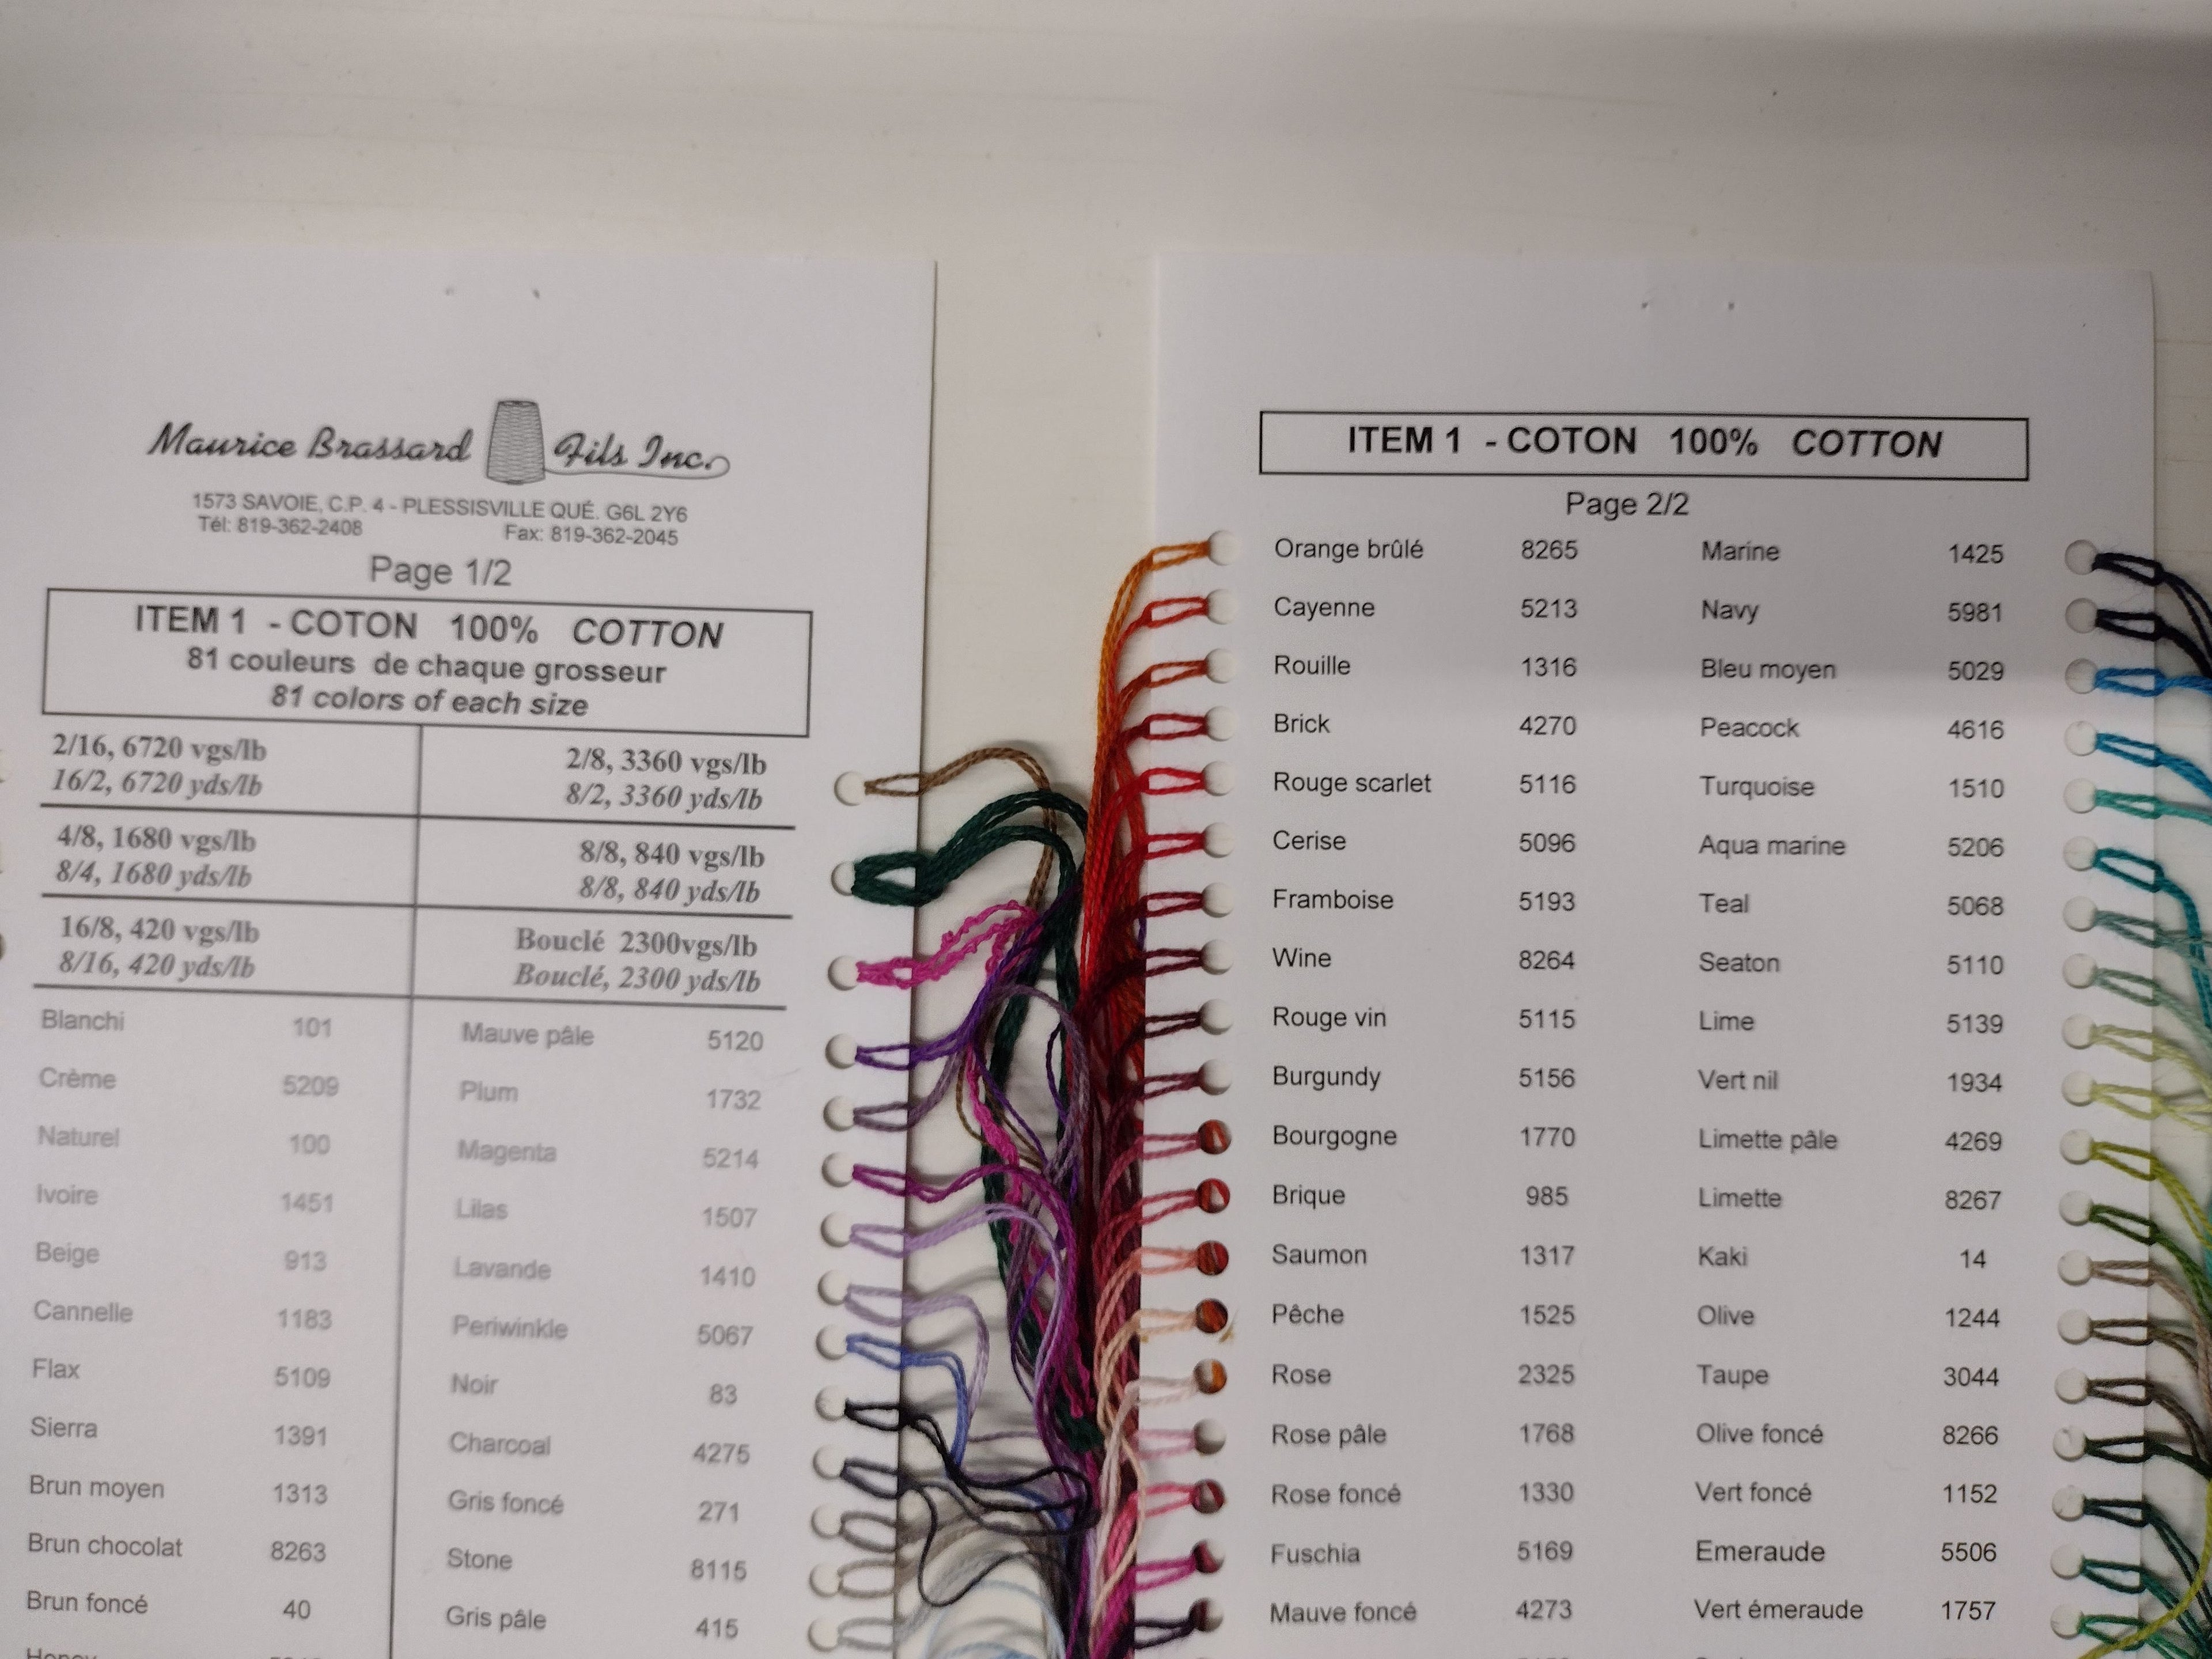 Maurice Brassard Fils Inc.
1573 SAVOIE, C.P. 4 - PLESSISVILLE QUÉ. G6L 2Y6
Tél: 819-362-2408 Fax: 819-362-2045
Page 1/2
ITEM 1 - COTON 100% COTTON
81 couleurs de chaque grosseur
81 colors of each size
2/16, 6720 vgs/lb
16/2, 6720 yds/lb
2/8, 3360 vgs/lb
8/2, 3360 yds/lb
4/8, 1680 vgs/lb
8/4, 1680 yds/lb
8/8, 840 vgs/lb
8/8, 840 yds/lb
16/8, 420 vgs/lb
8/16, 420 yds/lb
Bouclé 2300vgs/lb
Bouclé, 2300 yds/lb
Blanchi 101
Crème 5209
Naturel 100
Ivoire 1451
Beige 913
Cannelle 1183
Flax 5109
Sierra 1391
Brun moyen 1313
Brun chocolat 8263
Brun foncé 40
Mauve pâle 5120
Plum 1732
Magenta 5214
Lilas 1507
Lavande 1410
Periwinkle 5067
Noir 83
Charcoal 4275
Gris foncé 271
Stone 8115
Gris pâle 415
ITEM 1 - COTON 100% COTTON
Page 2/2
Orange brûlé 8265
Cayenne 5213
Rouille 1316
Brick 4270
Rouge scarlet 5116
Cerise 5096
Framboise 5193
Wine 8264
Rouge vin 5115
Burgundy 5156
Bourgogne 1770
Brique 985
Saumon 1317
Pêche 1525
Rose 2325
Rose pâle 1768
Rose foncé 1330
Fuschia 5169
Mauve foncé 4273
Marine 1425
Navy 5981
Bleu moyen 5029
Peacock 4616
Turquoise 1510
Aqua marine 5206
Teal 5068
Seaton 5110
Lime 5139
Vert nil 1934
Limette pâle 4269
Limette 8267
Kaki 14
Olive 1244
Taupe 3044
Olive foncé 8266
Vert foncé 1152
Emeraude 5506
Vert émeraude 1757